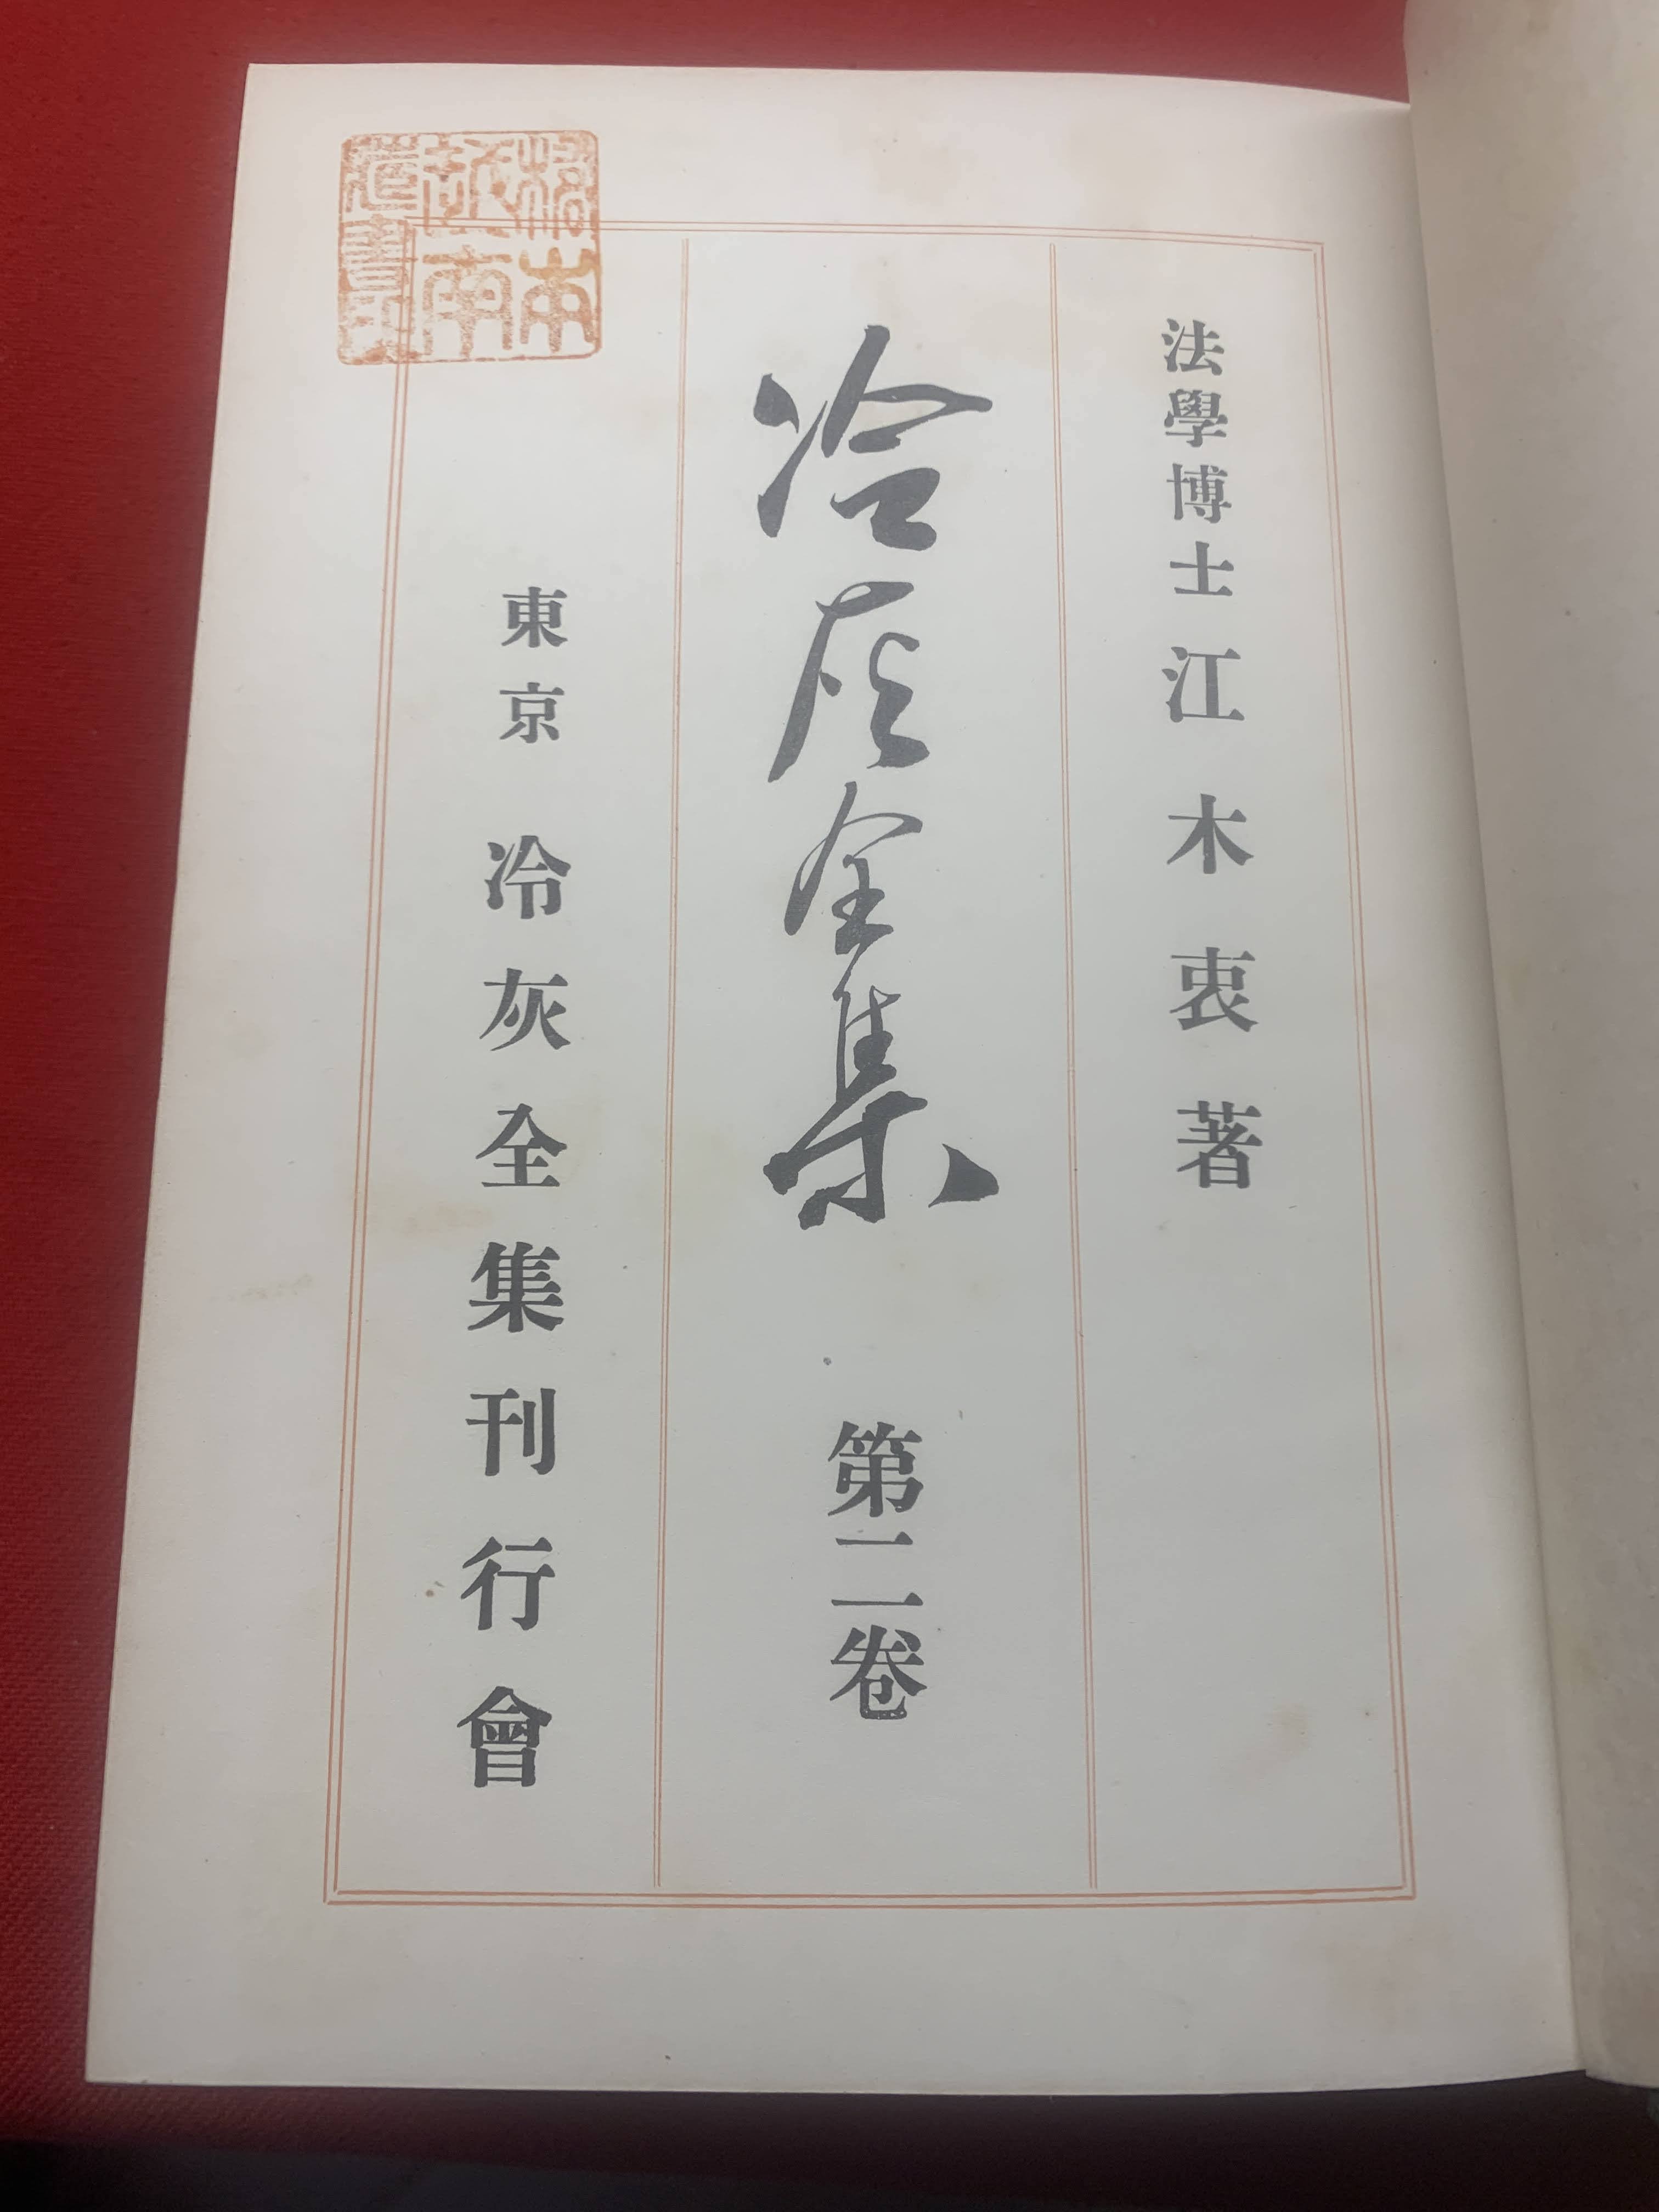 法學博士 江木衷著
冷灰全集 第二卷
東京 冷灰全集刊行會